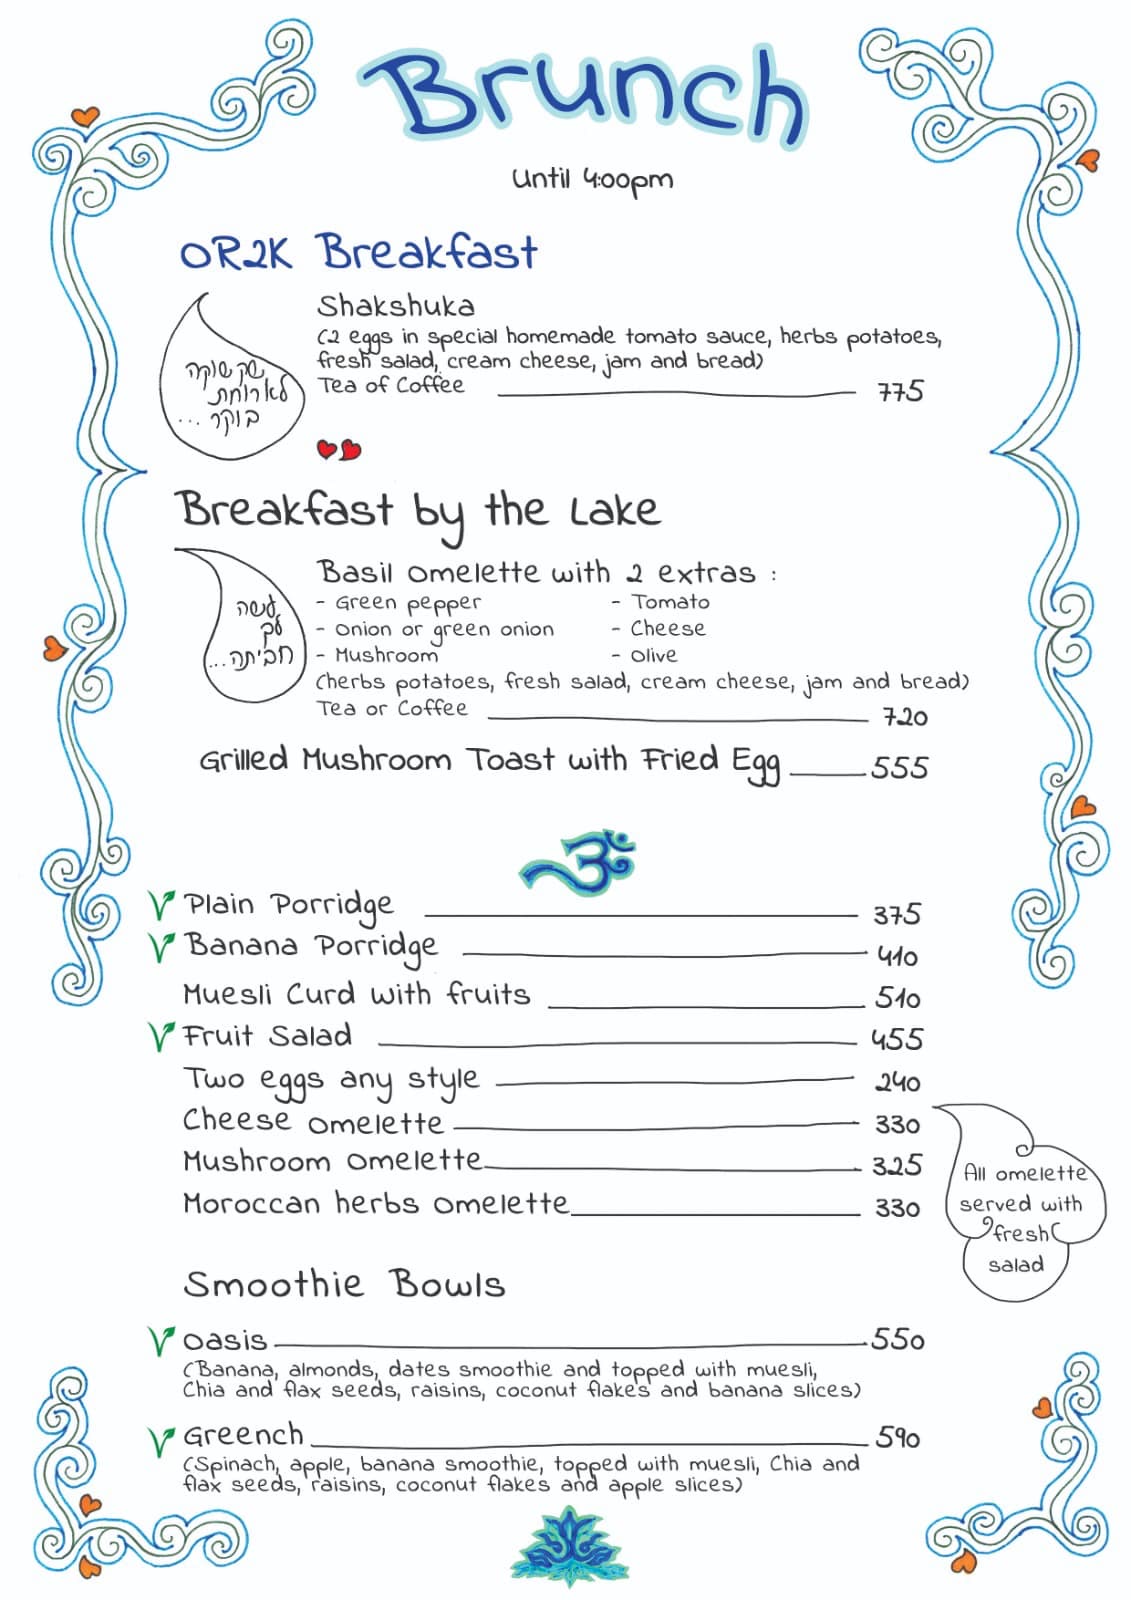 Brunch
Until 4:00pm
OR2K Breakfast
Shakshuka
(2 eggs in special homemade tomato sauce, herbs potatoes,
fresh salad, cream cheese, jam and bread)
Tea of Coffee 775
שק שוקה
לארוחת
בוקר ...
Breakfast by the Lake
Basil Omelette with 2 extras :
- Green pepper - Tomato
- Onion or green onion - Cheese
- Mushroom - Olive
(herbs potatoes, fresh salad, cream cheese, jam and bread)
Tea or Coffee 720
נעשה
לך
חביתה...
Grilled Mushroom Toast with Fried Egg 555
ॐ
V Plain Porridge 375
V Banana Porridge 410
Muesli Curd with fruits 510
V Fruit Salad 455
Two eggs any style 240
Cheese Omelette 330
Mushroom Omelette 325
Moroccan herbs Omelette 330
All omelette
served with
fresh
salad
Smoothie Bowls
V Oasis 550
(Banana, almonds, dates smoothie and topped with muesli,
Chia and flax seeds, raisins, coconut flakes and banana slices)
V Greench 590
(Spinach, apple, banana smoothie, topped with muesli, Chia and
flax seeds, raisins, coconut flakes and apple slices)